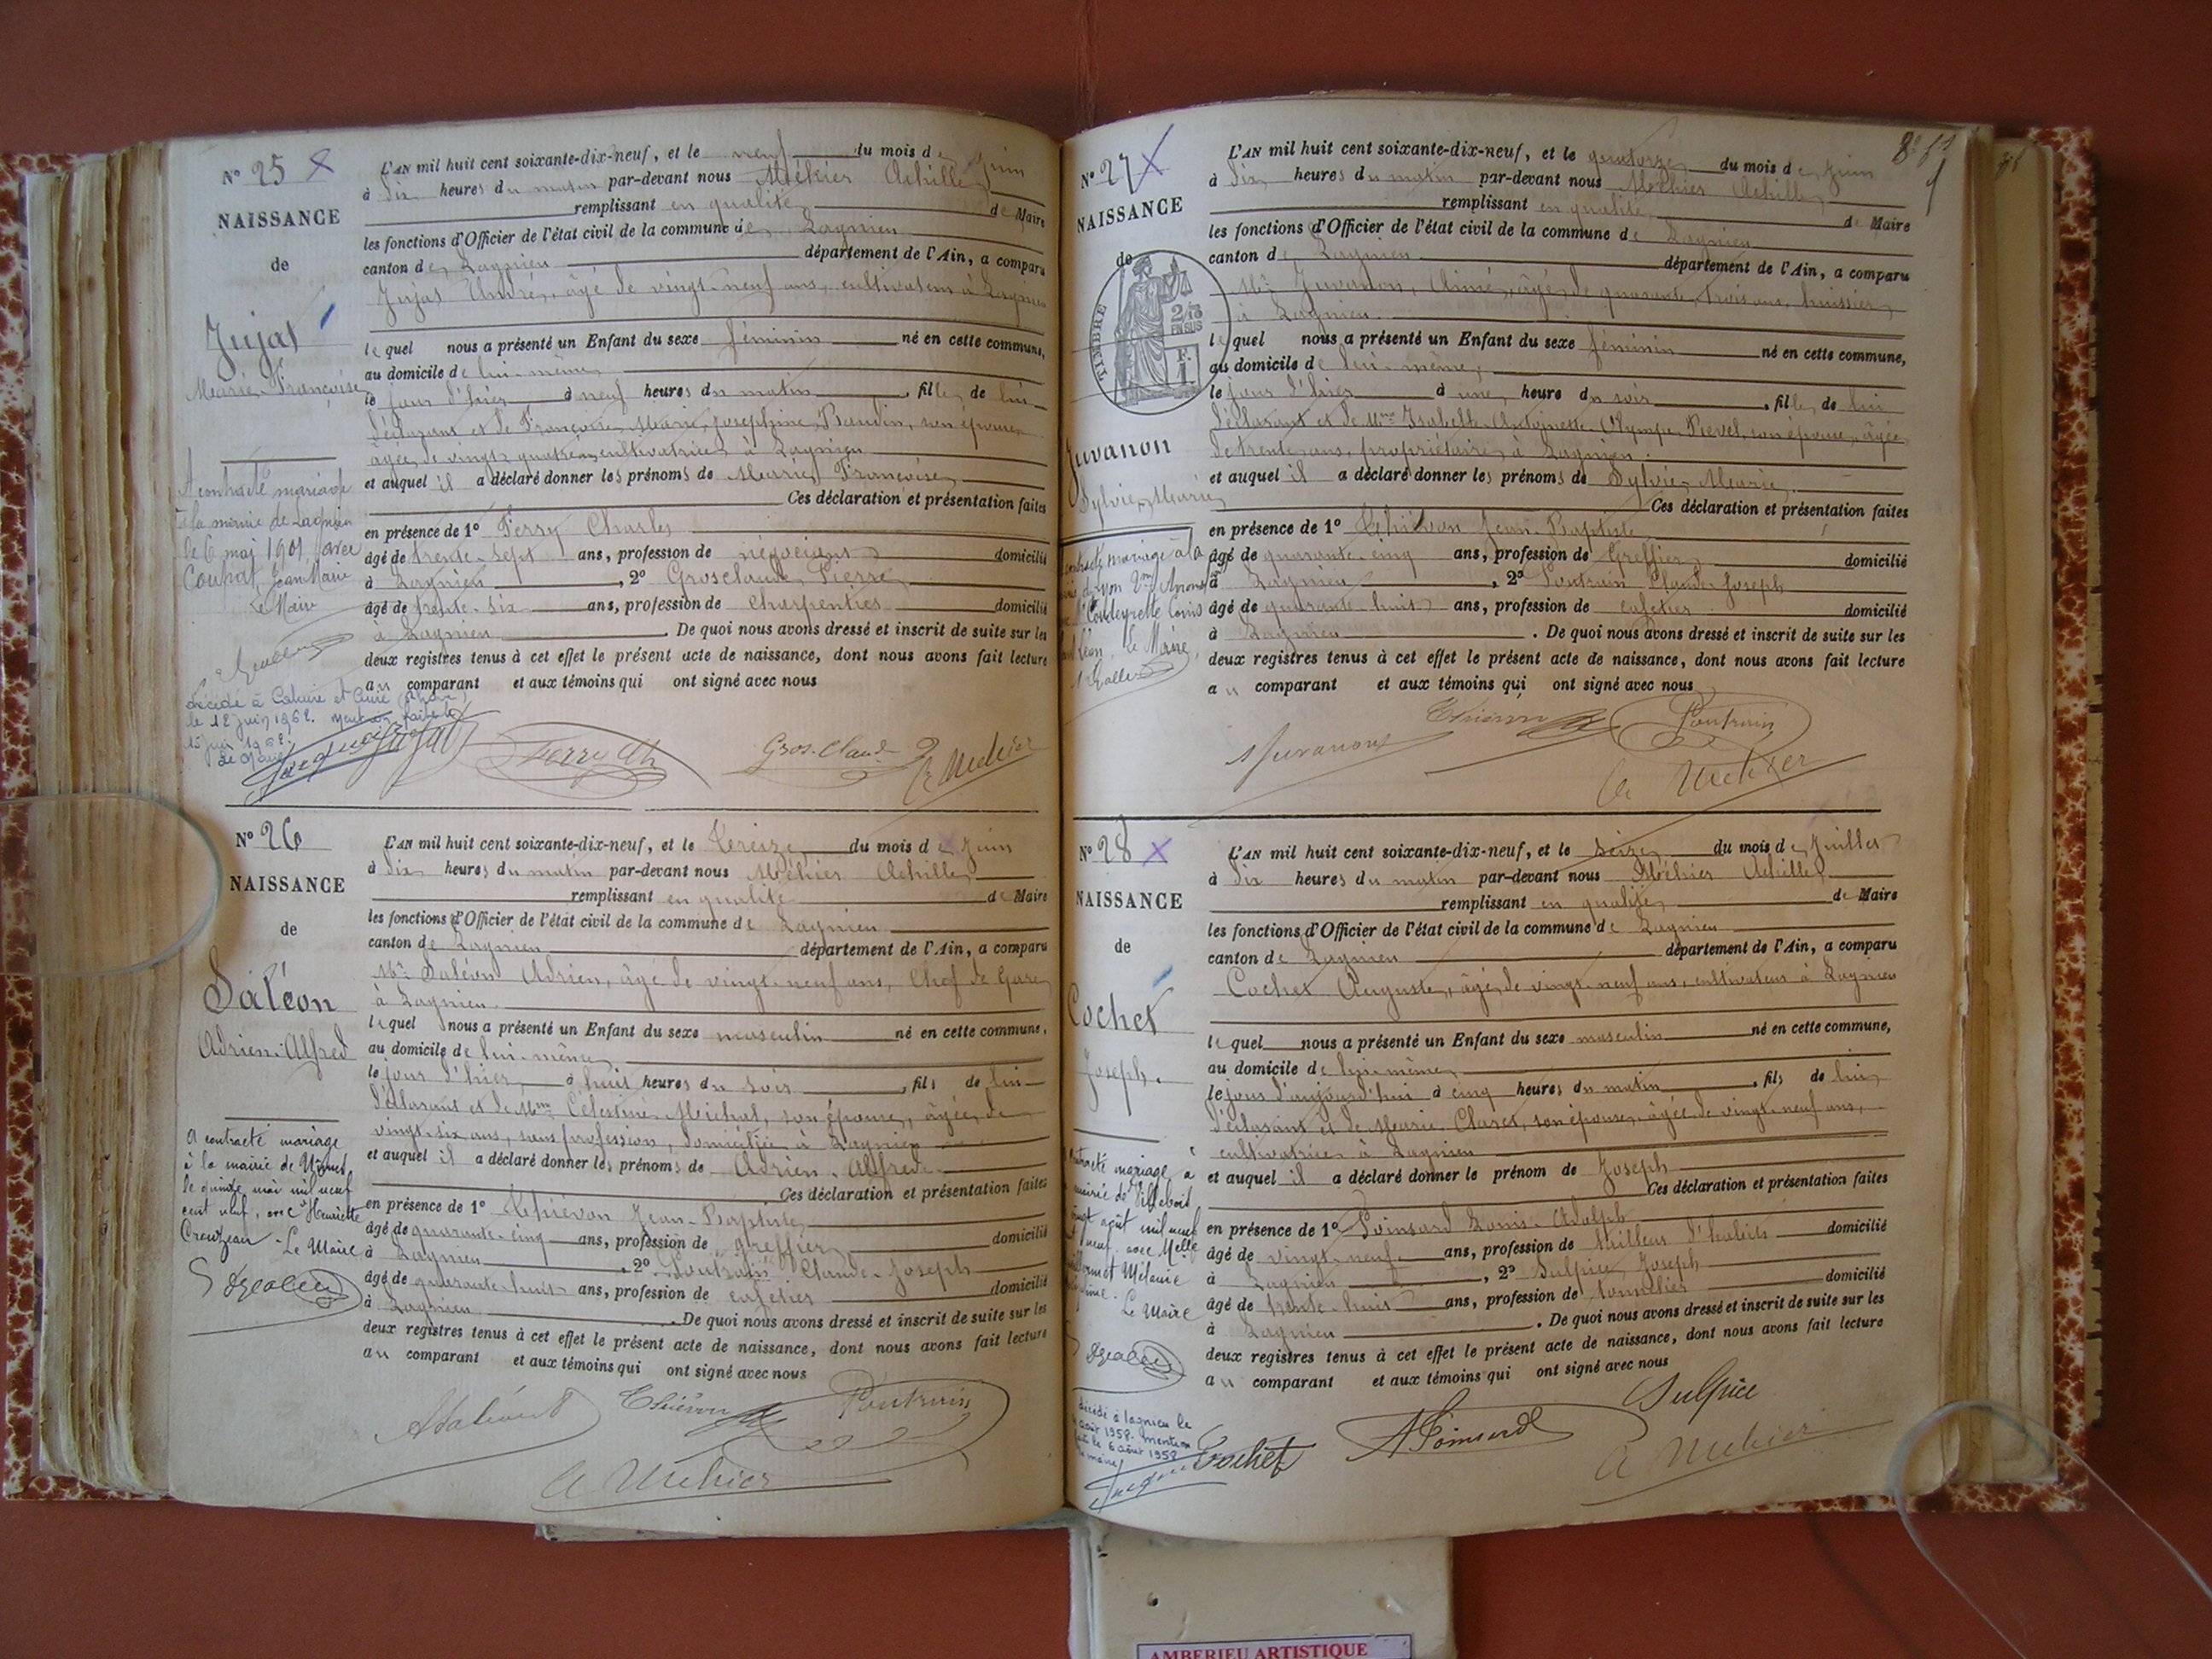 N° 25
NAISSANCE
de
Jujat
Marie-Françoise
A contracté mariage
à la mairie de Lagnieu
le 6 mai 1901 avec
Coupat, Jean Marie
Le Maire
décédé à Caluire et Cuire (Rhône)
le 12 juin 1962. Mention faite le
15 juin 1962.
Le Maire
L'AN mil huit cent soixante-dix-neuf, et le neuf du mois de Juin
à dix heures du matin par-devant nous Méhier Achille
remplissant en qualité de Maire
les fonctions d'Officier de l'état civil de la commune de Lagnieu
canton de Lagnieu département de l'Ain, a comparu
Jujat André, âgé de vingt-neuf ans, cultivateur à Lagnieu
lequel nous a présenté un Enfant du sexe féminin né en cette commune,
au domicile de lui-même,
le jour d'hier à neuf heures du matin, fille de lui
déclarant et de Françoise Marie Josephine Baudin, son épouse
âgée de vingt quatre ans, cultivatrice à Lagnieu
et auquel il a déclaré donner les prénoms de Marie Françoise
Ces déclaration et présentation faites
en présence de 1° Ferry Charles
âgé de trente-sept ans, profession de négociant domicilié
à Lagnieu, 2° Grosclaude Pierre
âgé de trente-six ans, profession de Charpentier domicilié
à Lagnieu. De quoi nous avons dressé et inscrit de suite sur les
deux registres tenus à cet effet le présent acte de naissance, dont nous avons fait lecture
au comparant et aux témoins qui ont signé avec nous
Ferry Ch
Gros. Claude
A Méhier
N° 26
NAISSANCE
de
Saléon
Adrien-Alfred
A contracté mariage
à la mairie de
le quinze mai mil neuf
cent neuf, avec Henriette
Creuzeau - Le Maire
L'AN mil huit cent soixante-dix-neuf, et le treize du mois de Juin
à dix heures du matin par-devant nous Méhier Achille
remplissant en qualité de Maire
les fonctions d'Officier de l'état civil de la commune de Lagnieu
canton de Lagnieu département de l'Ain, a comparu
Mr Saléon Adrien, âgé de vingt-neuf ans, Chef de Gare
à Lagnieu.
lequel nous a présenté un Enfant du sexe masculin né en cette commune,
au domicile de lui-même
le jour d'hier, à huit heures du soir, fils de lui
déclarant et de Mme Célestine Michat, son épouse, âgée de
vingt-six ans, sans profession, domiciliée à Lagnieu
et auquel il a déclaré donner les prénoms de Adrien. Alfred.
Ces déclaration et présentation faites
en présence de 1° Thiévon Jean-Baptiste
âgé de quarante-cinq ans, profession de greffier domicilié
à Lagnieu, 2° Poutrain Claude-Joseph
âgé de quarante-huit ans, profession de cafetier domicilié
à Lagnieu. De quoi nous avons dressé et inscrit de suite sur les
deux registres tenus à cet effet le présent acte de naissance, dont nous avons fait lecture
au comparant et aux témoins qui ont signé avec nous
A Saléon
Thiévon
Poutrain
A Méhier
N° 27
NAISSANCE
de
TIMBRE
2/10
EN SUS
Juvanon
Sylvie-Marie
contracté mariage à la
Coudeyrette Louis
Léon, Le Maire,
L'AN mil huit cent soixante-dix-neuf, et le quatorze du mois de Juin
à dix heures du matin par-devant nous Méhier Achille
remplissant en qualité de Maire
les fonctions d'Officier de l'état civil de la commune de Lagnieu
canton de Lagnieu département de l'Ain, a comparu
Mr Juvanon, Aimé, âgé de quarante trois ans, huissier
à Lagnieu.
lequel nous a présenté un Enfant du sexe féminin né en cette commune,
au domicile de lui-même,
le jour d'hier à une heure du soir, fille de lui
déclarant et de Mme Isabelle Antoinette Olympe Pievel, son épouse, âgée
de trente ans, propriétaire, à Lagnieu.
et auquel il a déclaré donner les prénoms de Sylvie, Marie.
Ces déclaration et présentation faites
en présence de 1° Thiévon Jean-Baptiste
âgé de quarante-cinq ans, profession de Greffier domicilié
à Lagnieu, 2° Poutrain Claude Joseph
âgé de quarante-huit ans, profession de cafetier domicilié
à Lagnieu. De quoi nous avons dressé et inscrit de suite sur les
deux registres tenus à cet effet le présent acte de naissance, dont nous avons fait lecture
au comparant et aux témoins qui ont signé avec nous
Juvanon
Thiévon
Poutrain
A Méhier
N° 28
NAISSANCE
de
Cochet
Joseph.
contracté mariage à
mairie de Villebois
août mil neuf
neuf avec Melle
Mélanie
Le Maire
décédé à Lagnieu le
août 1958. Mention
le 6 août 1958
L'AN mil huit cent soixante-dix-neuf, et le seize du mois de Juillet
à dix heures du matin par-devant nous Méhier Achille
remplissant en qualité de Maire
les fonctions d'Officier de l'état civil de la commune de Lagnieu
canton de Lagnieu département de l'Ain, a comparu
Cochet Auguste, âgé de vingt-neuf ans, cultivateur à Lagnieu
lequel nous a présenté un Enfant du sexe masculin né en cette commune,
au domicile de lui-même
le jour d'aujourd'hui à cinq heures du matin, fils de lui
déclarant et de Marie Claret, son épouse, âgée de vingt-neuf ans,
cultivatrice à Lagnieu
et auquel il a déclaré donner le prénom de Joseph
Ces déclaration et présentation faites
en présence de 1° Poinsard Louis-Adolph
âgé de vingt-neuf ans, profession de tailleur d'habits domicilié
à Lagnieu, 2° Sulpice Joseph
âgé de trente-huit ans, profession de tonnelier domicilié
à Lagnieu. De quoi nous avons dressé et inscrit de suite sur les
deux registres tenus à cet effet le présent acte de naissance, dont nous avons fait lecture
au comparant et aux témoins qui ont signé avec nous
Cochet
A Poinsard
Sulpice
A Méhier
AMBERIEU ARTISTIQUE